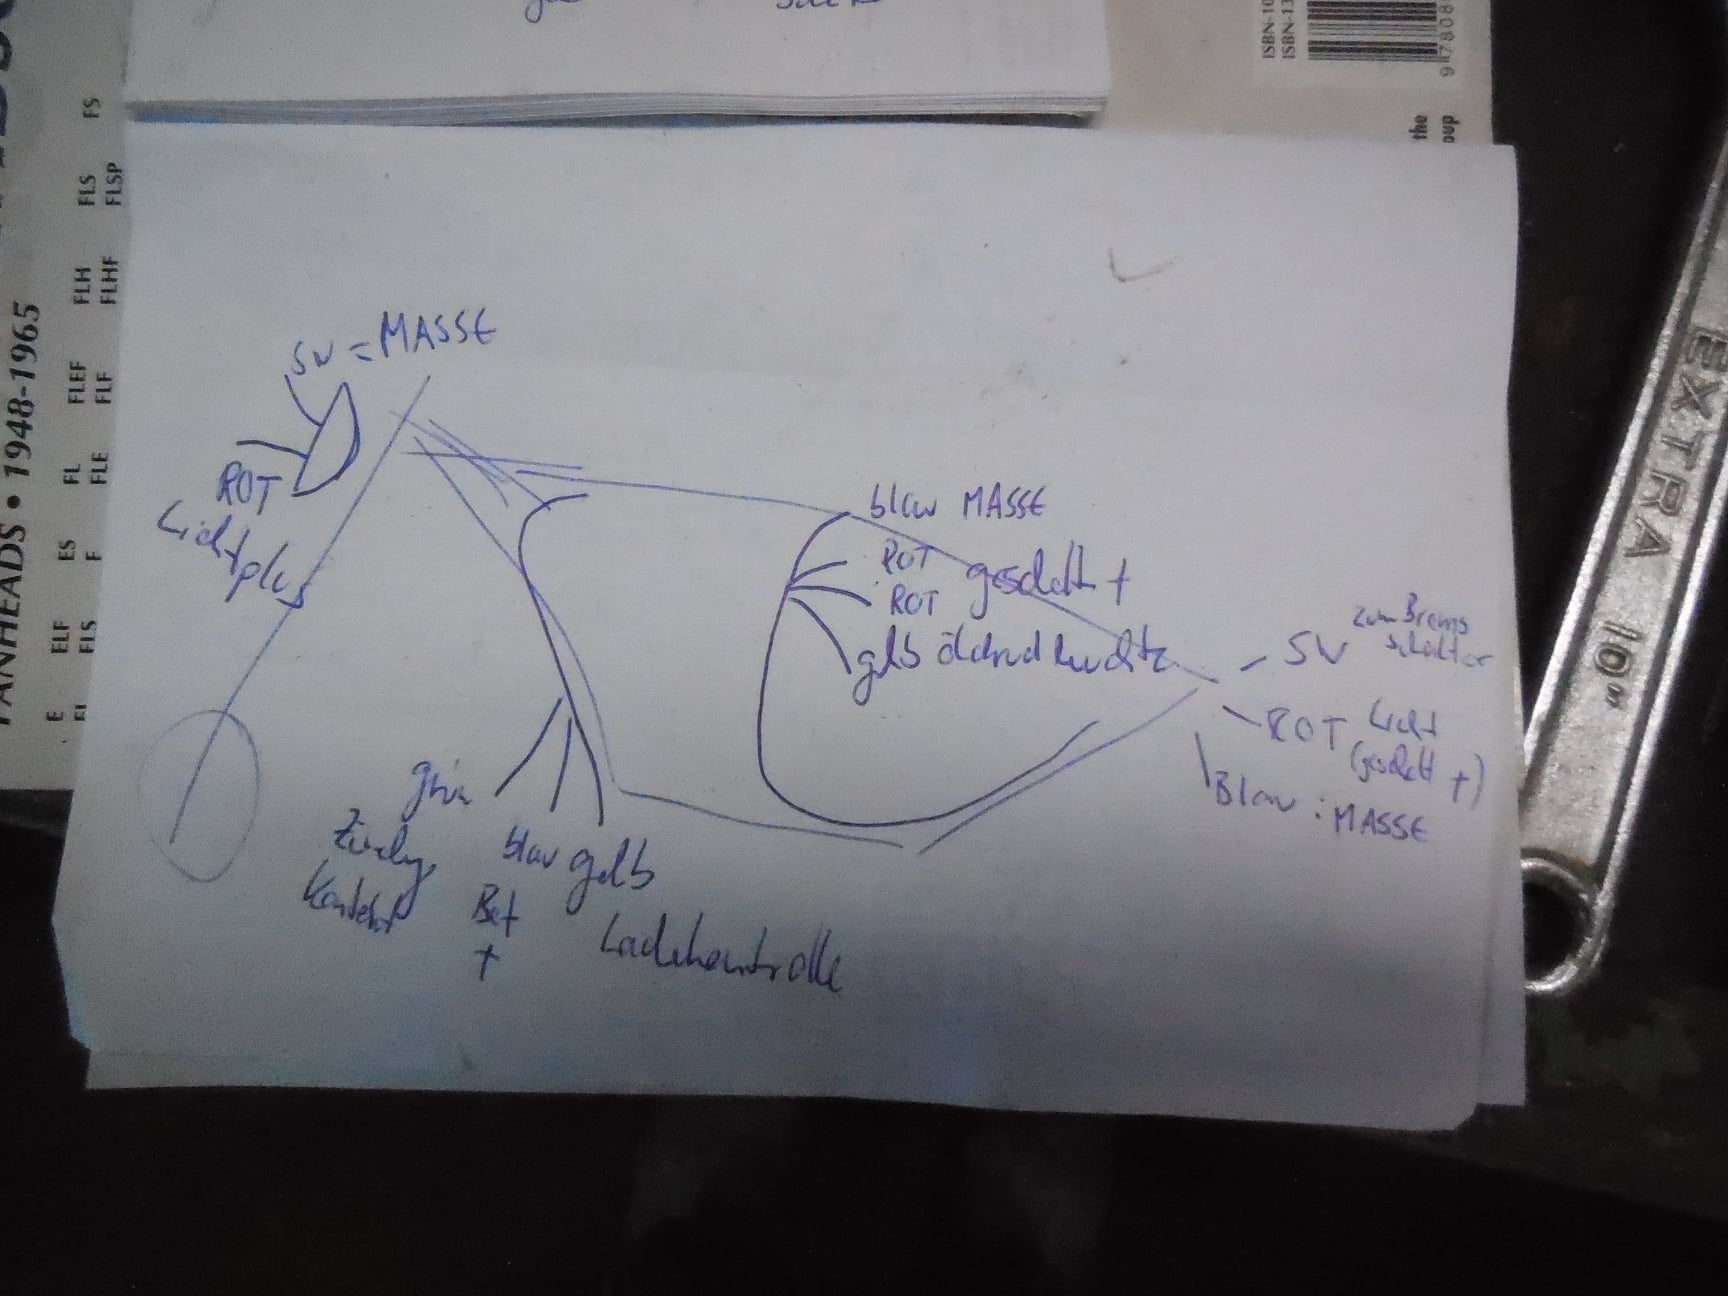 ISBN-10
ISBN-13
9 78080
the
oup
PANHEADS • 1948-1965
E
EL
ELF
ELS
ES
F
FL
FLE
FLEF
FLF
FLH
FLHF
FLS
FLSP
FS
SW = MASSE
ROT
Lichtplus
blau MASSE
ROT
ROT
geschalt +
gelb öldruckleuchte
SW zum Brems
schalter
ROT Licht
(geschalt +)
Blau : MASSE
grün
Zündung
Kontakt
blau
Bat
+
gelb
Ladekontrolle
EXTRA 10"